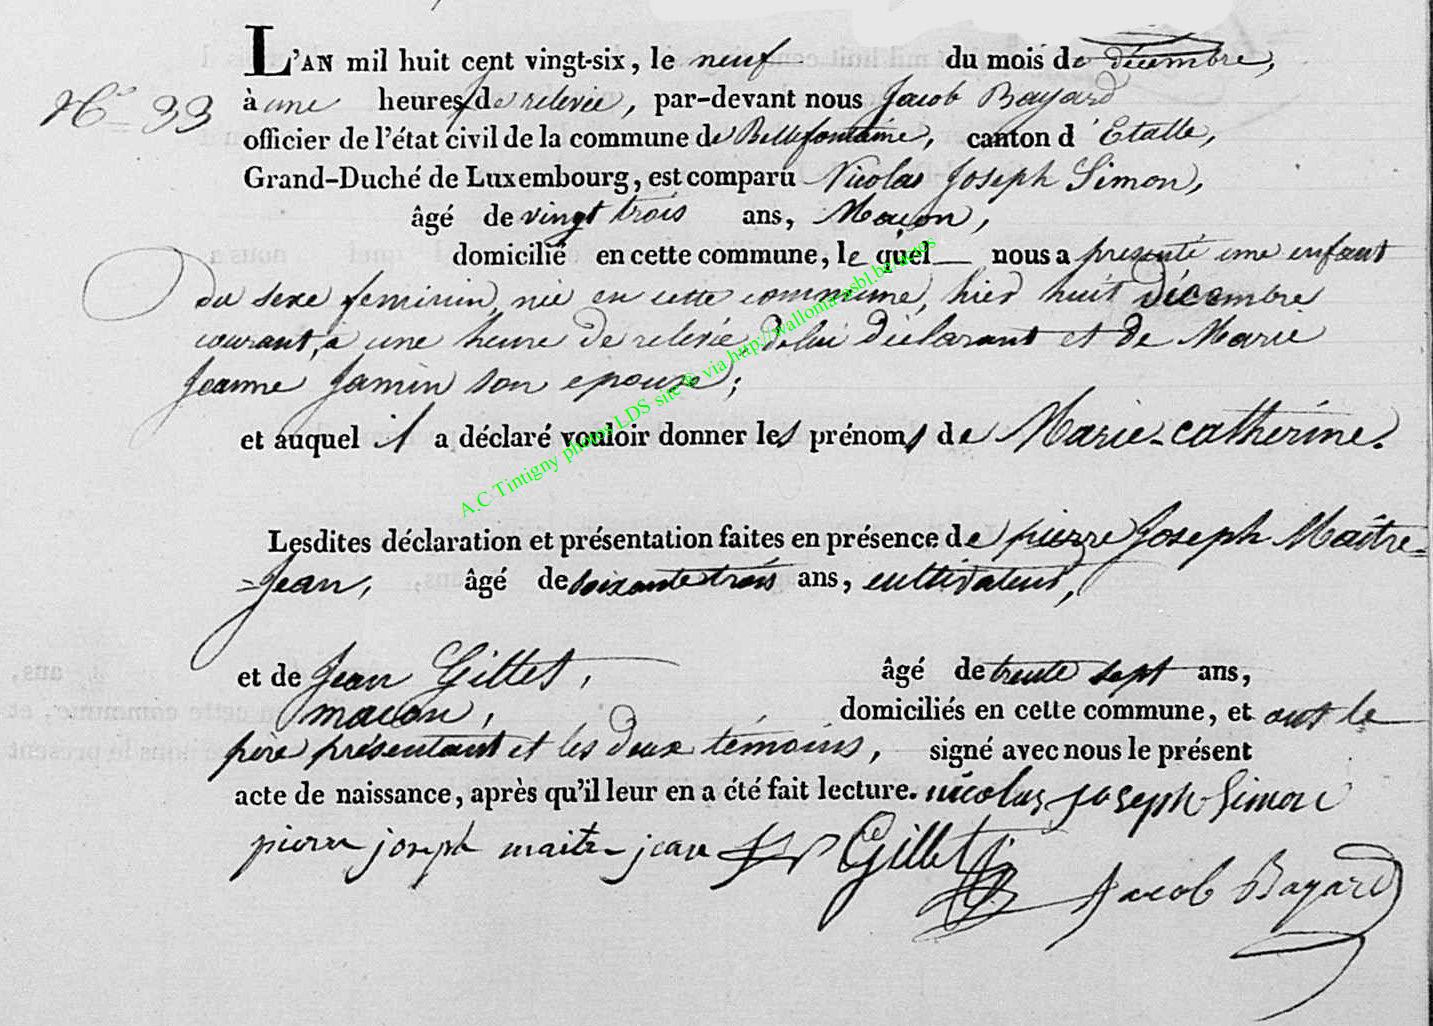 L'AN mil huit cent vingt-six, le neuf du mois de décembre,
N.° 33
à une heures de relevée, par-devant nous Jacob Bayard
officier de l'état civil de la commune de Bellefontaine, canton d'Etalle,
Grand-Duché de Luxembourg, est comparu Nicolas Joseph Simon,
âgé de vingt trois ans, Maçon,
domicilié en cette commune, le quel nous a presenté une enfant
du sexe feminin, née en cette commune, hier huit décembre
courant, à une heure de relevée de lui déclarant et de Marie
Jeanne Jamin son epouse;
et auquel il a déclaré vouloir donner les prénoms de Marie-catherine.
Lesdites déclaration et présentation faites en présence de pierre Joseph Maître=
=Jean, âgé de soixante trois ans, cultivateur,
et de Jean Gillet, âgé de trente sept ans,
macon, domiciliés en cette commune, et ont le
père présentant et les deux témoins, signé avec nous le présent
acte de naissance, après qu'il leur en a été fait lecture. nicolas joseph Simon
pierre joseph maitre jean Gillet
Jacob Bayard
A.C Tintigny photos LDS site © via http://wallonia-asbl.be/actes